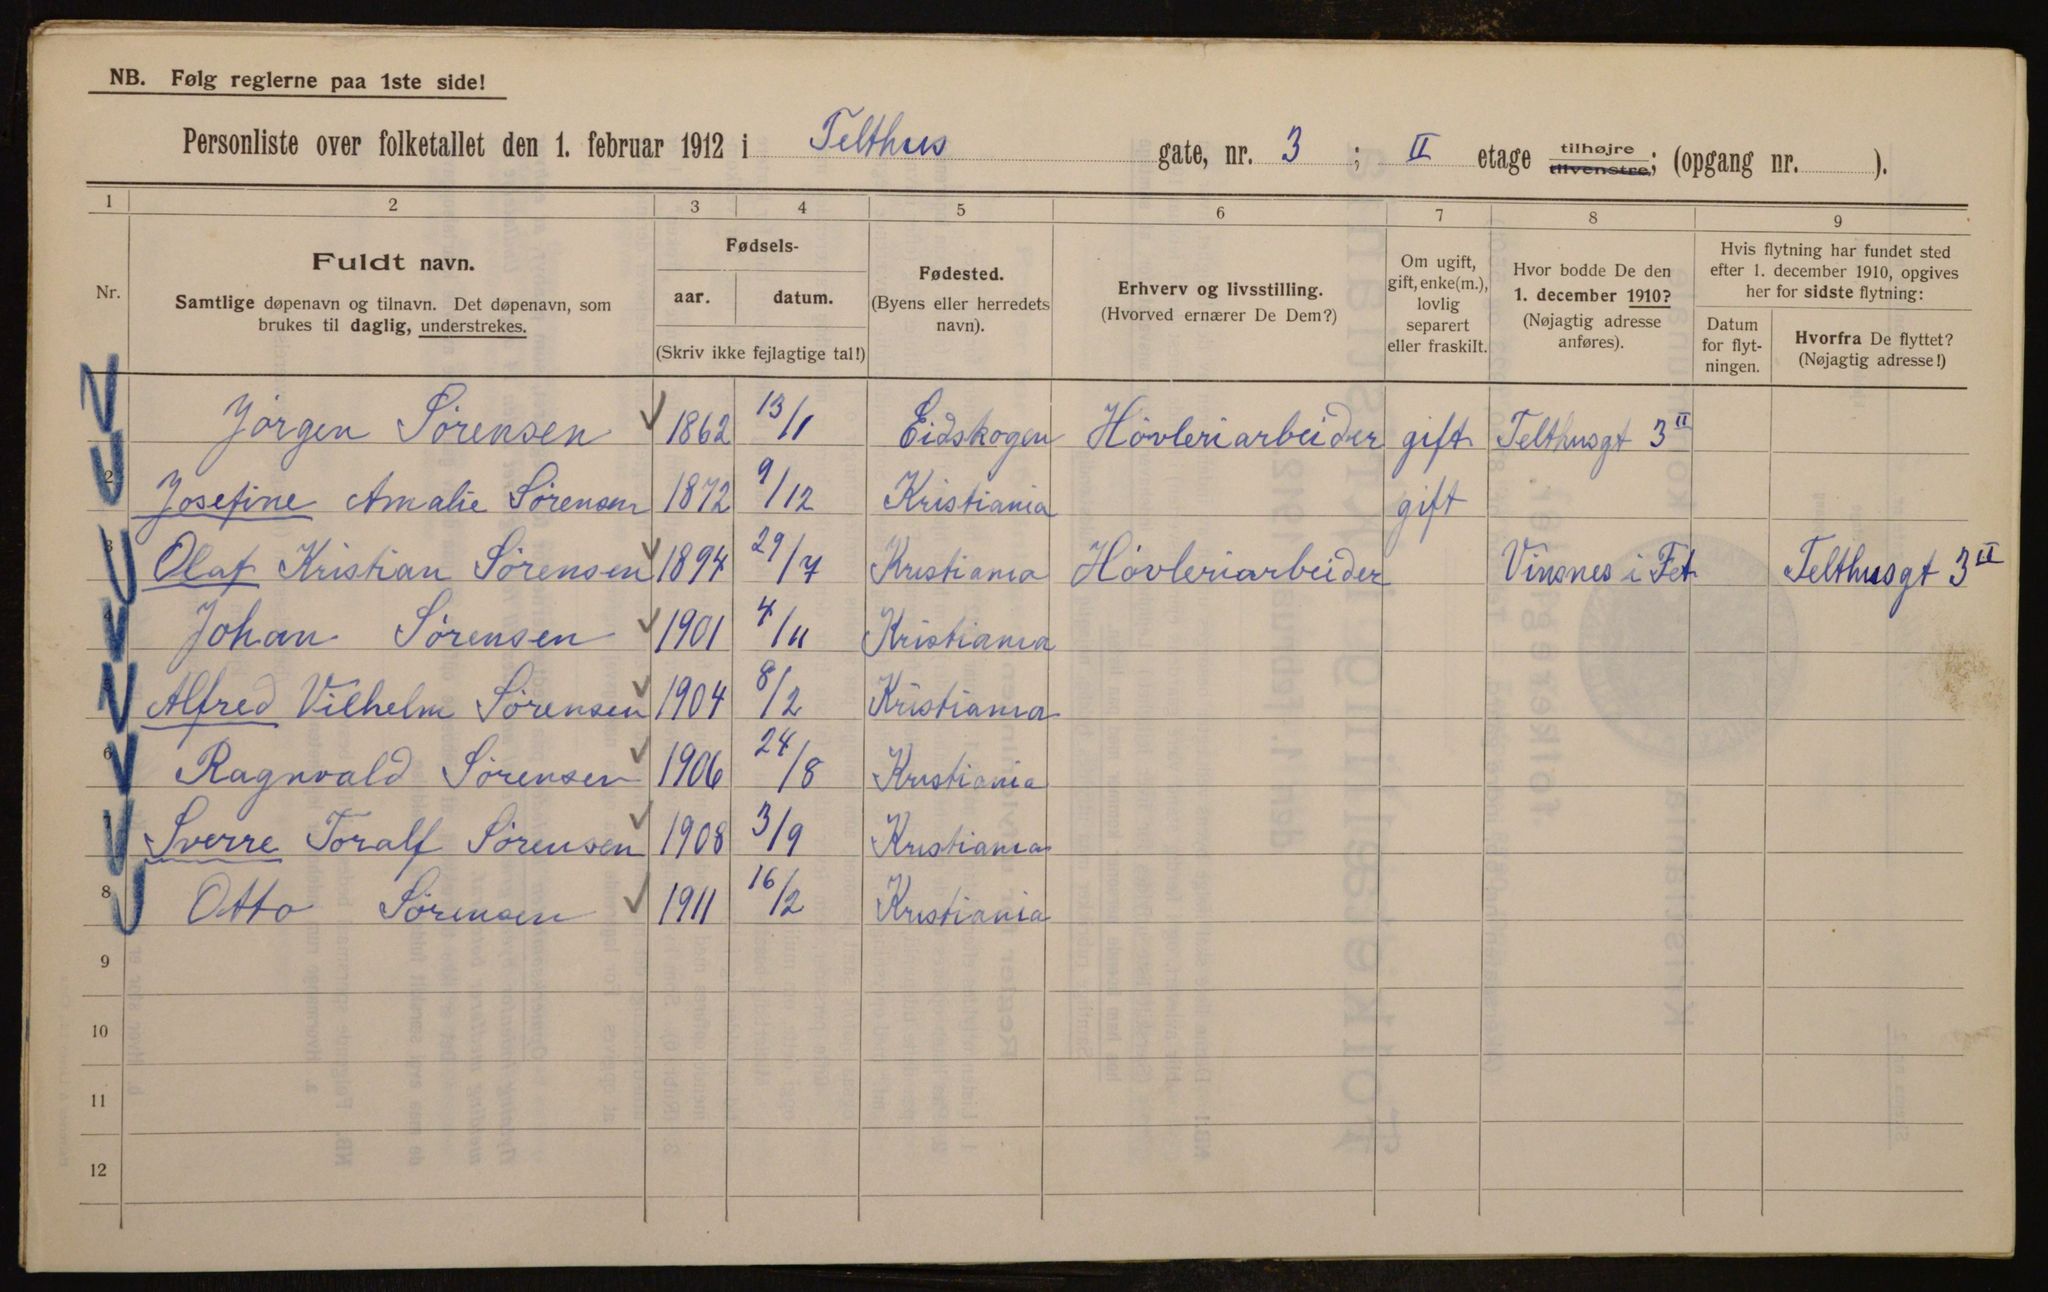 NB. Følg reglerne paa 1ste side!
Personliste over folketallet den 1. februar 1912 i Telthus gate, nr. 3 ; II etage tilhøjre tilvenstre; (opgang nr. ).
1 2 3 4 5 6 7 8 9
Nr.
Fuldt navn.
Samtlige døpenavn og tilnavn. Det døpenavn, som
brukes til daglig, understrekes.
Fødsels-
aar. datum.
(Skriv ikke fejlagtige tal!)
Fødested.
(Byens eller herredets
navn).
Erhverv og livsstilling.
(Hvorved ernærer De Dem?)
Om ugift,
gift, enke(m.),
lovlig
separert
eller fraskilt.
Hvor bodde De den
1. december 1910?
(Nøjagtig adresse
anføres).
Hvis flytning har fundet sted
efter 1. december 1910, opgives
her for sidste flytning:
Datum
for flyt-
ningen.
Hvorfra De flyttet?
(Nøjagtig adresse!)
Jørgen Sørensen 1862 13/1 Eidskogen Høvleriarbeider gift Telthusgt 3 II
2 Josefine Amalie Sørensen 1872 9/12 Kristiania gift
3 Olaf Kristian Sørensen 1894 29/7 Kristiania Høvleriarbeider Vinsnes i Fet Telthusgt 3 II
4 Johan Sørensen 1901 4/11 Kristiania
5 Alfred Vilhelm Sørensen 1904 8/2 Kristiania
6 Ragnvald Sørensen 1906 24/8 Kristiania
7 Sverre Toralf Sørensen 1908 3/9 Kristiania
8 Otto Sørensen 1911 16/2 Kristiania
9
10
11
12